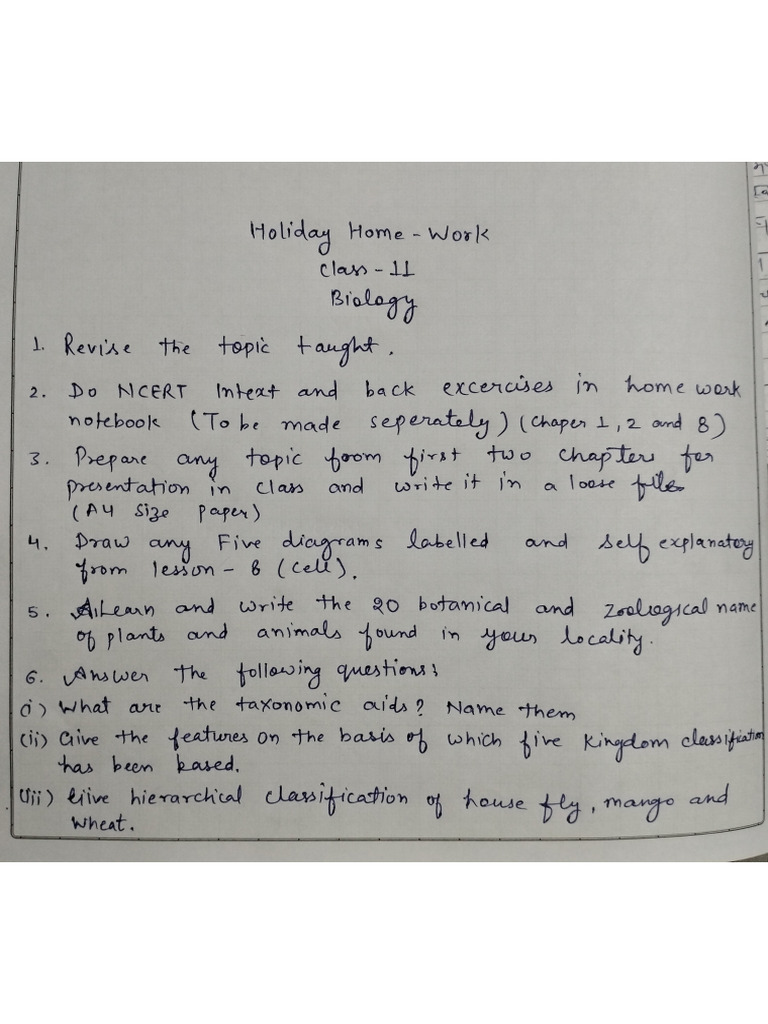 Holiday Home-Work
Class-11
Biology
1. Revise the topic taught.
2. Do NCERT Intext and back excercises in home work
notebook (To be made seperately) (Chaper 1, 2 and 8)
3. Prepare any topic from first two chapters for
presentation in class and write it in a loose files
(A4 Size paper)
4. Draw any Five diagrams labelled and self explanatory
from lesson - 8 (cell).
5. Learn and write the 20 botanical and Zoological name
of plants and animals found in your locality.
6. Answer the following questions:
(i) What are the taxonomic aids? Name them
(ii) Give the features on the basis of which five kingdom classification
has been based.
(iii) Give hierarchical classification of house fly, mango and
wheat.